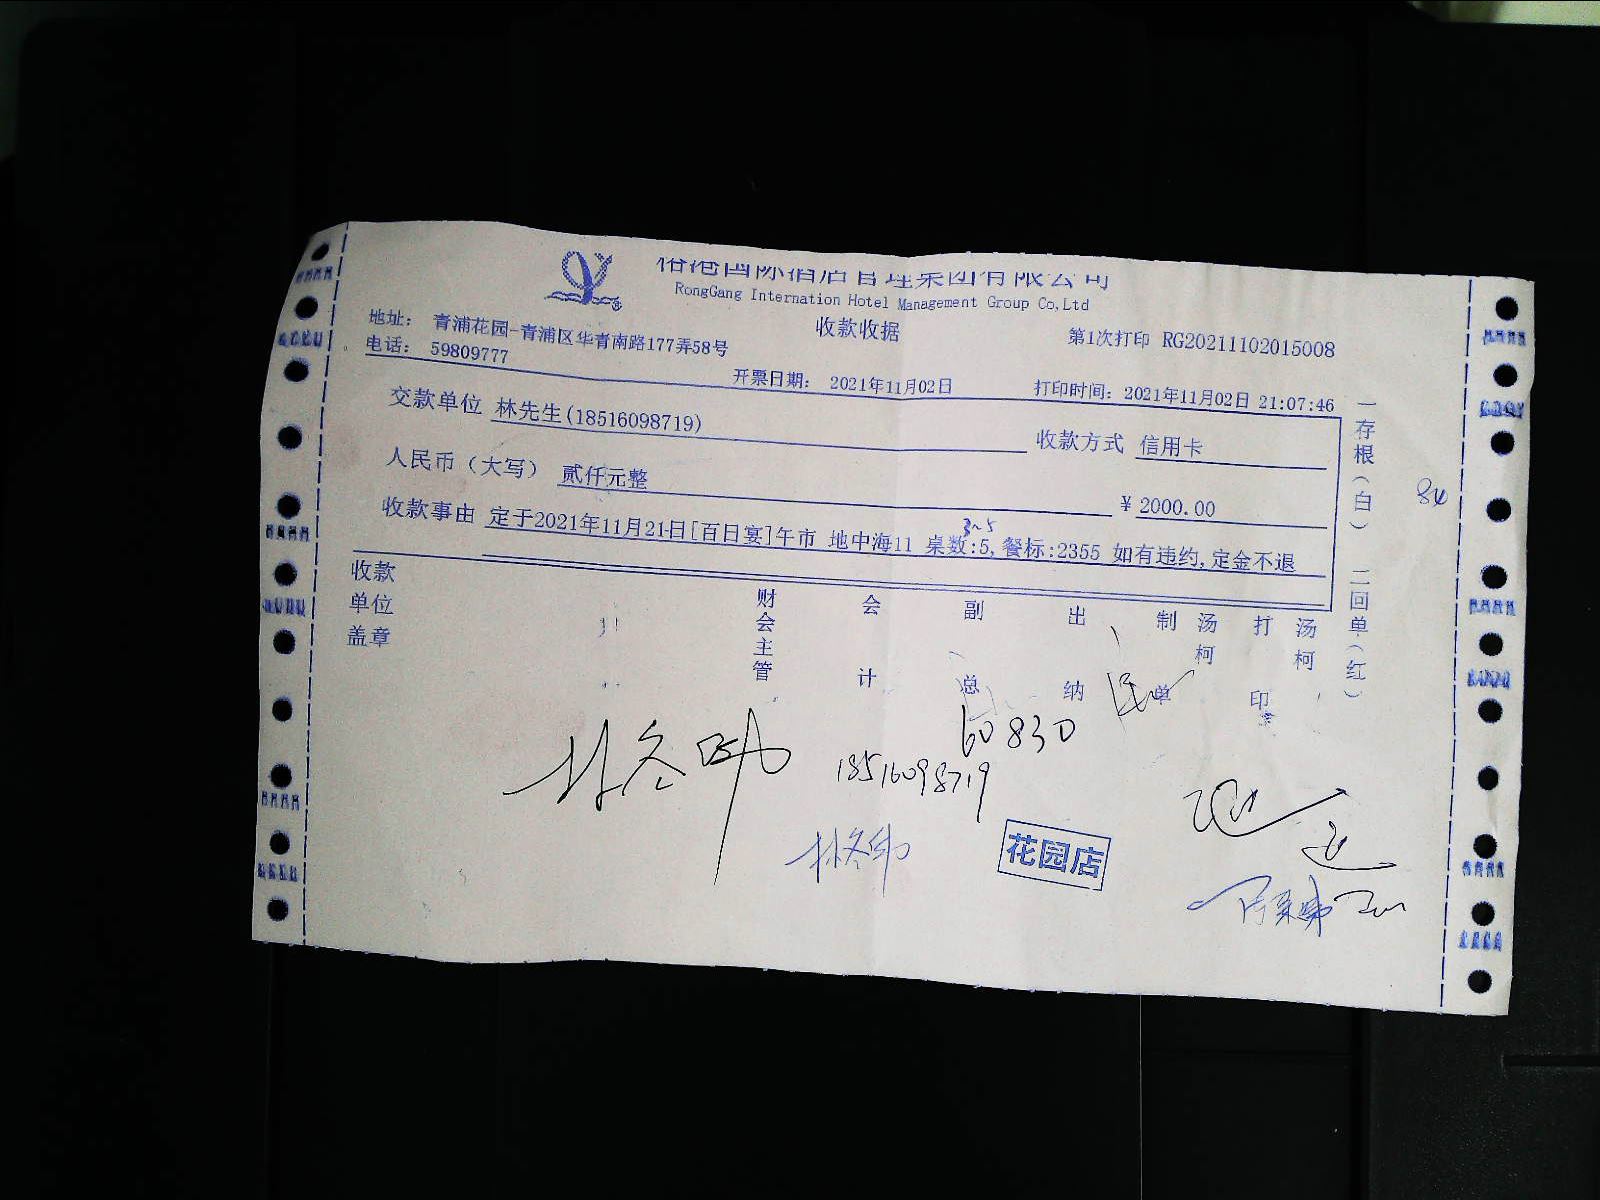 港国际酒店管理集团有限公司
RongGang Internation Hotel Management Group Co,Ltd
地址： 青浦花园-青浦区华青南路177弄58号
收款收据
第1次打印 RG20211102015008
电话： 59809777
开票日期： 2021年11月02日
打印时间：2021年11月02日 21:07:46
交款单位 林先生(18516098719)
收款方式 信用卡
人民币（大写） 贰仟元整
¥ 2000.00
3~5
收款事由 定于2021年11月21日[百日宴]午市 地中海11 桌数:5,餐标:2355 如有违约,定金不退
一存根（白） 二回单（红）
84
收款单位盖章
财会主管
会计
副总
出纳
制单
汤柯
打印
汤柯
60830
18516098719
花园店